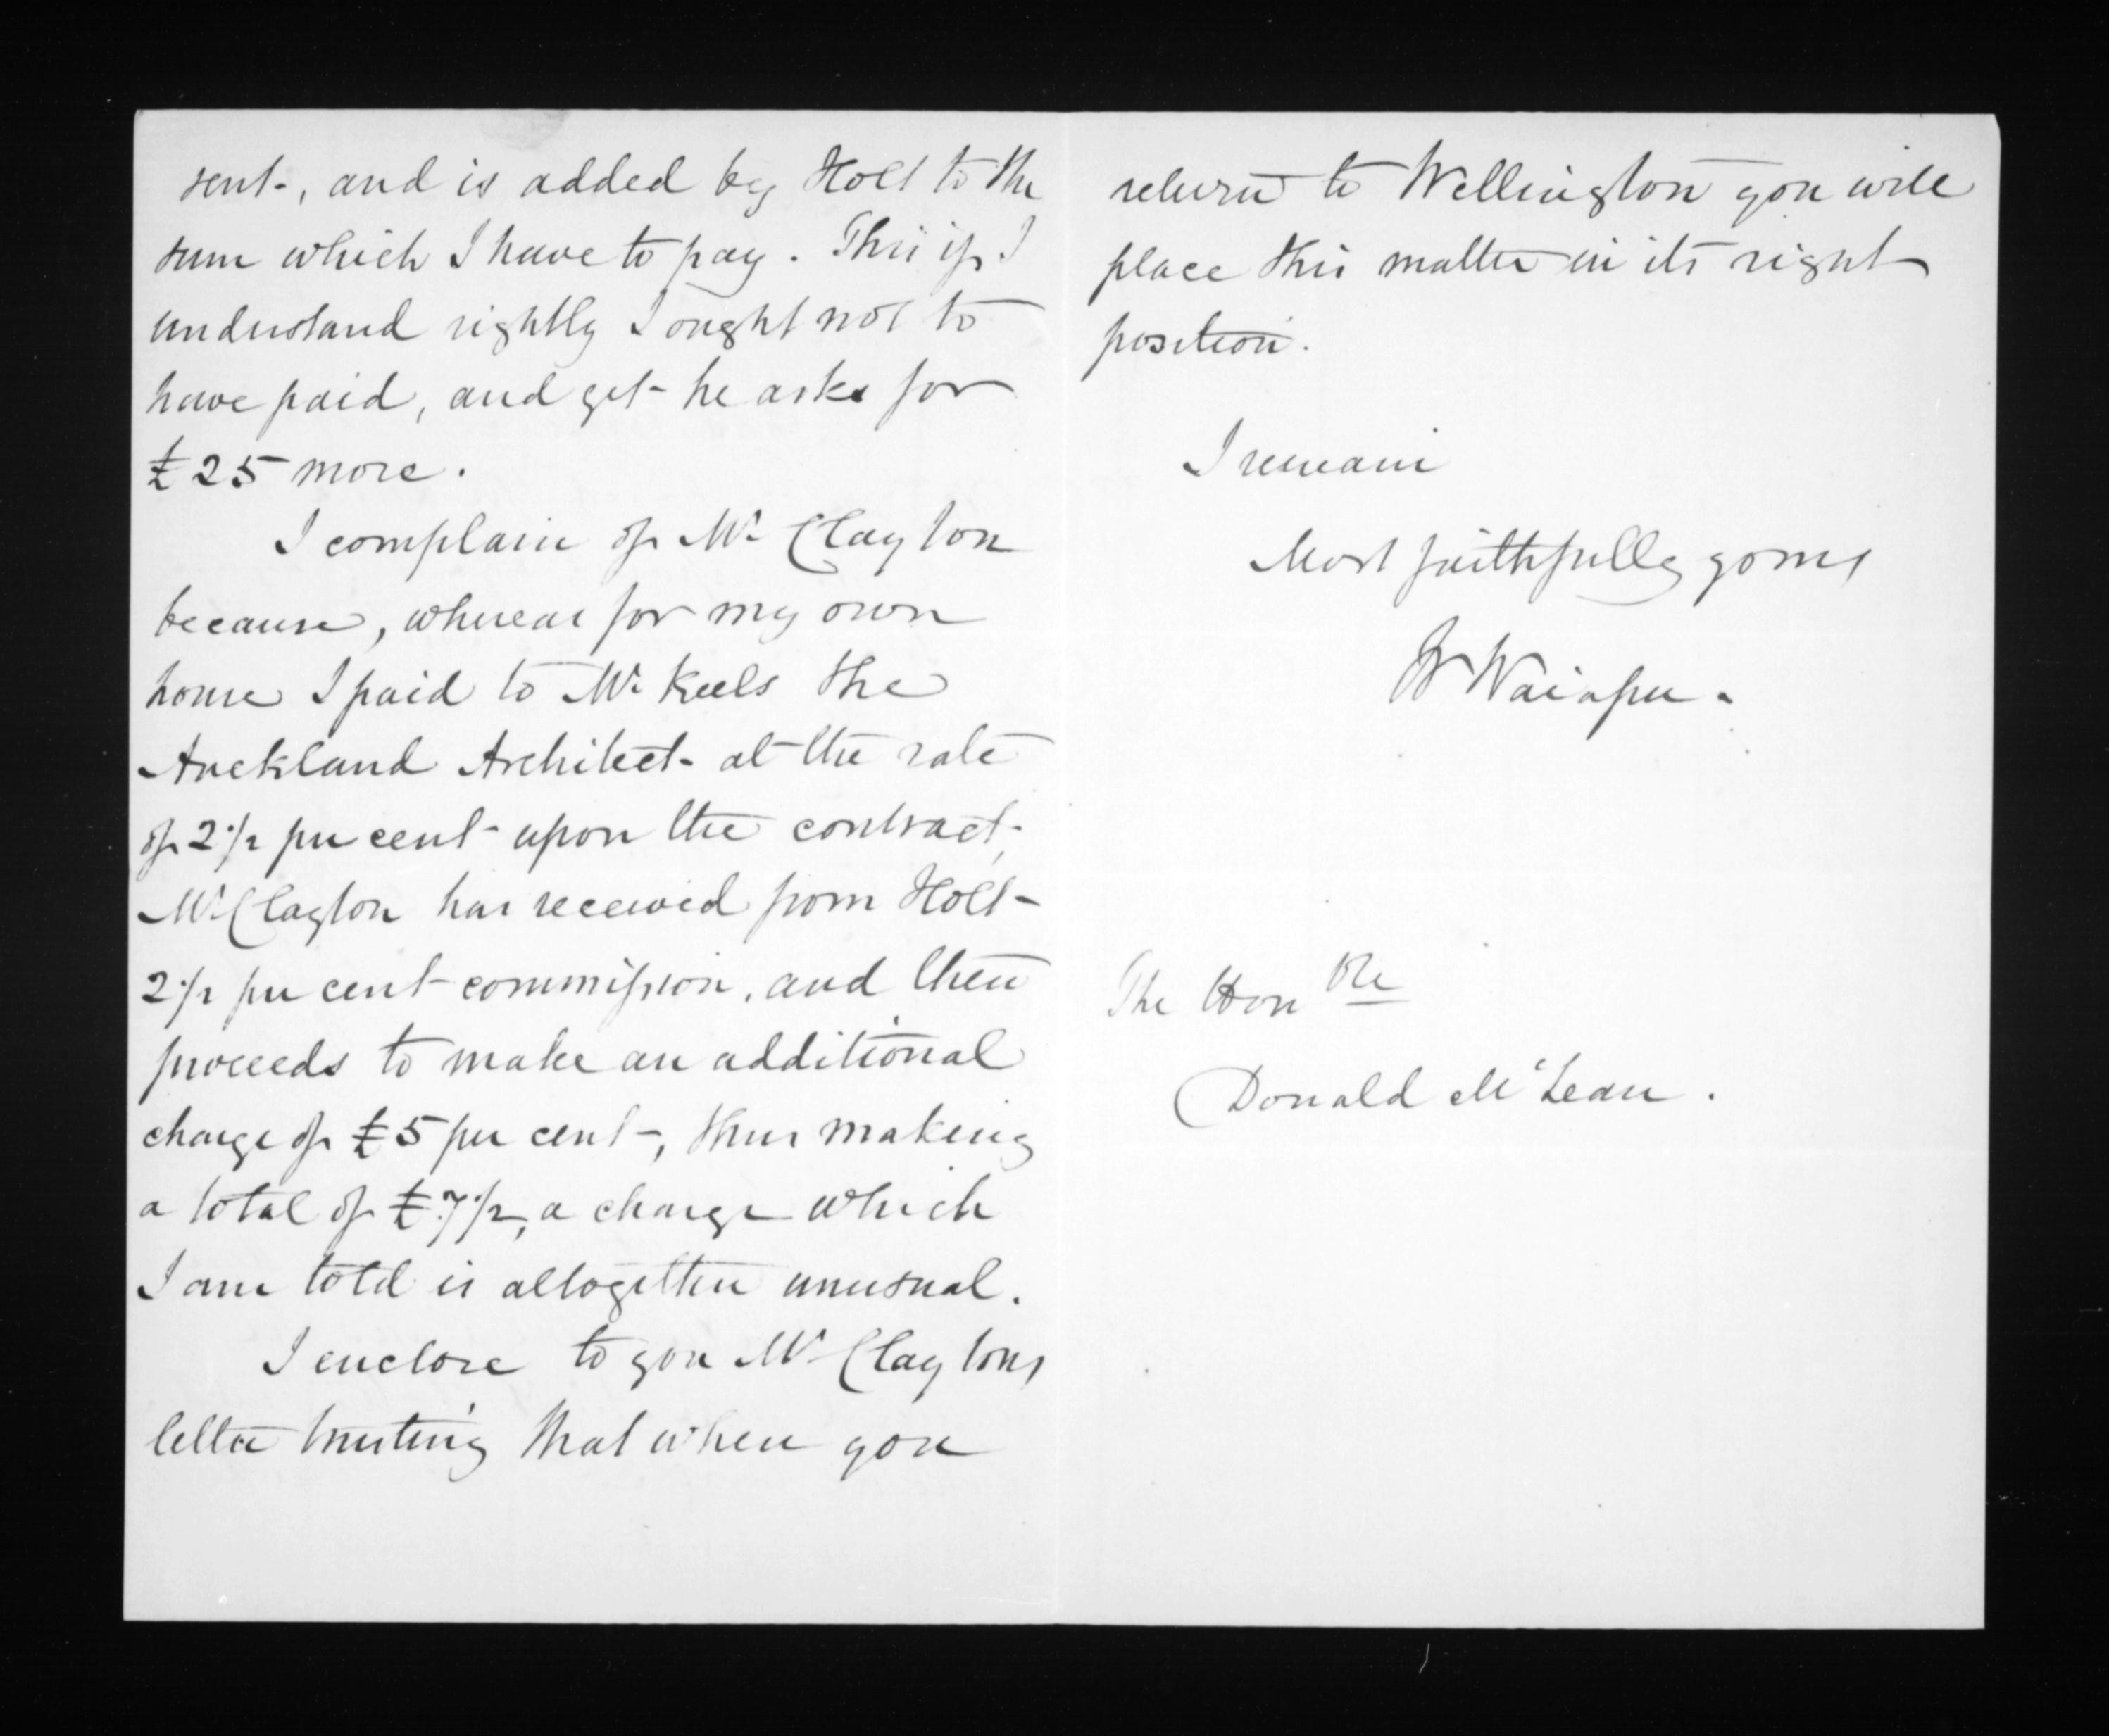 sent, and is added by Holt to the
sum which I have to pay. This if I
understand rightly I ought not to
have paid, and yet he asks for
£25 more.
I complain of Mr Clayton
because, whereas for my own
house I paid to Mr Keels the
Auckland Architect at the rate
of 2 1/2 per cent upon the contract,
Mr Clayton has received from Holt
2 1/2 per cent commission, and then
proceeds to make an additional
charge of £5 per cent, thus making
a total of £7 1/2, a charge which
I am told is altogether unusual.
I enclose to you Mr Claytons
letter trusting that when you
return to Wellington you will
place this matter in its right
position.
I remain
Most faithfully yours
W Waiapu.
The Honble
Donald McLean.